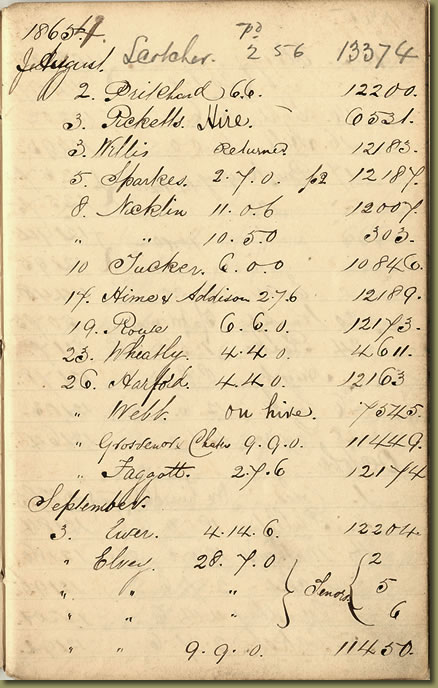 1865
August. Scatcher. pd 2 5 6 13374
2. Pritchard 6.6. 12200.
3. Picketts. Hire. 6531.
3. Willis Returned 12183.
5. Sparkes. 2.7.0. 12187.
8. Nicklin 11.0.6 12007.
" " 10.5.0 303.
10 Tucker. 6.0.0 10846.
17. Hime & Addison 2.7.6 12189.
19. Rowe 6.6.0. 12173.
23. Wheatly. 4.4.0. 4611.
26. Harfold. 4.4.0. 12163
" Webb. on hire. 7545.
" Grosvenor 9.9.0. 11449.
" Faggott. 2.7.6 12174
September.
3. Ewer. 4.14.6. 12204.
" Elvey. 28.7.0 2
" " " Tenors. 5
" " " 6
" " 9.9.0. 11450.